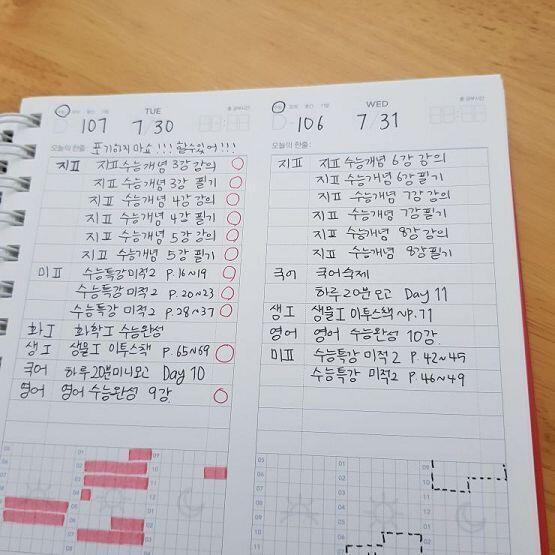 TUE
D-107 7/30
오늘의 한줄: 포기하지 마요!!! 할수있어!!!
지표 지표 수능개념 3강 강의
지표 수능개념 3강 필기
지표 수능개념 4강 강의
지표 수능개념 4강 필기
지표 수능개념 5강 강의
지표 수능개념 5강 필기
미표 수능특강 미적2 P.16~19
수능특강 미적2 P.20~23
수능특강 미적2 P.28~37
화I 화학I 수능완성
생I 생물I 이투스책 P.65~69
국어 하루20분미니모고 Day 10
영어 영어 수능완성 9강
WED
D-106 7/31
오늘의 한줄:
지표 지표 수능개념 6강 강의
지표 수능개념 6강 필기
지표 수능개념 7강 강의
지표 수능개념 7강 필기
지표 수능개념 8강 강의
지표 수능개념 8강 필기
국어 국어숙제
하루20분모고 Day 11
생I 생물I 이투스책 ~P.71
영어 영어 수능완성 10강
미표 수능특강 미적2 P.42~45
수능특강 미적2 P.46~49